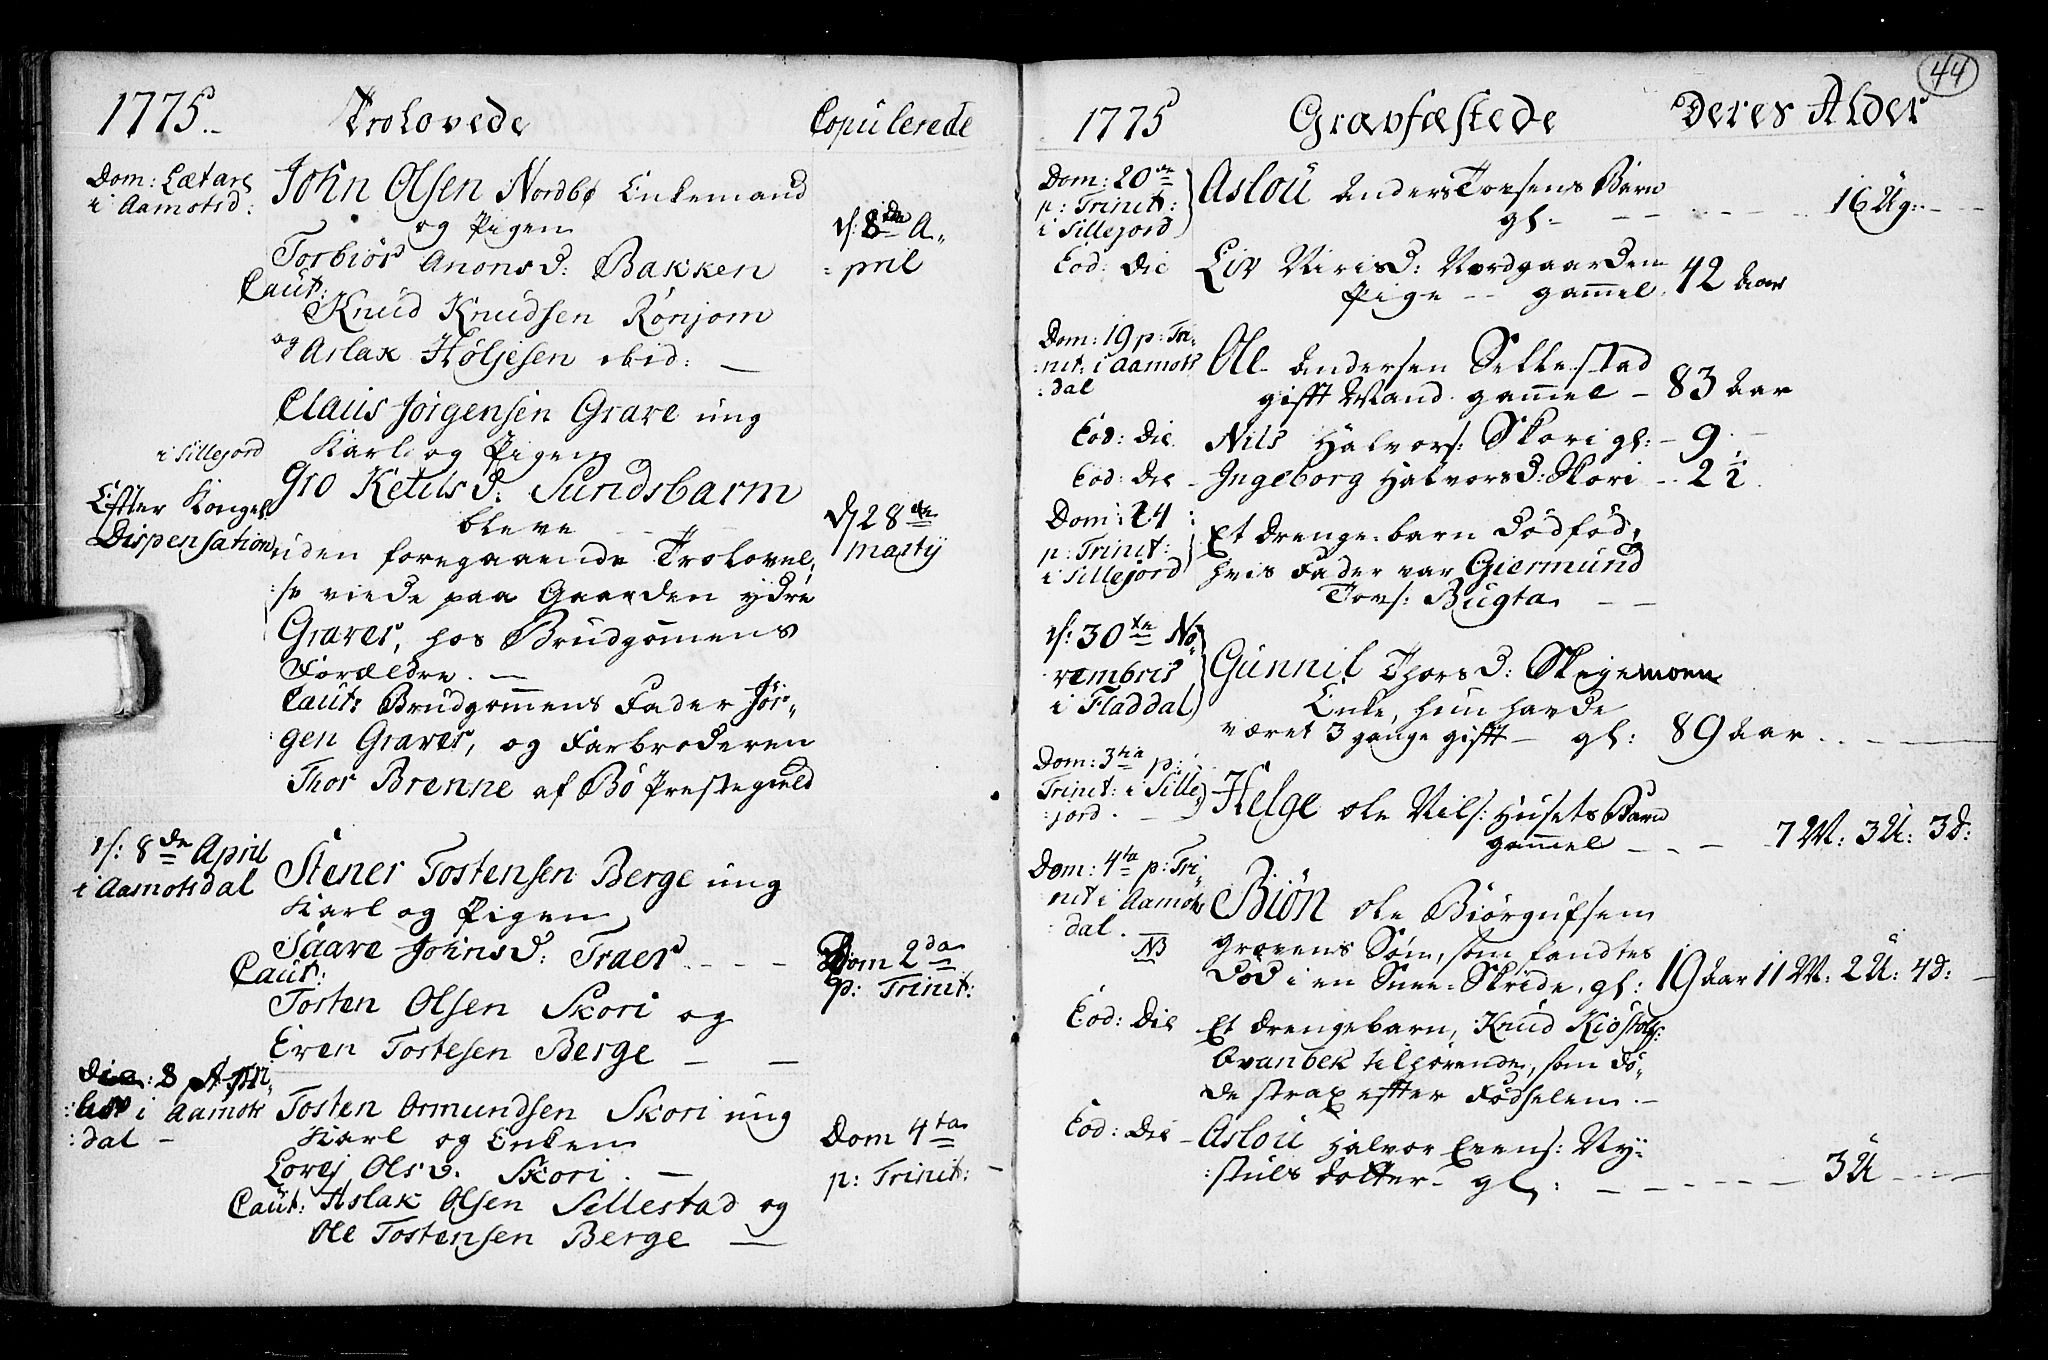 1775.
Trolovede
Copulerede
Dom: Lætare
i Aamotsd:
John Olsen Nordbø Enkemand
og Pigen
Torbiør Anonsd: Bakken
d: 8de A„
:pril
Caut:
Knud Knudsen Rønjom
og Aslak Høljesen ibid:
Claus Jørgensen Grave ung
i Sillejord
Karl og Pigen
Gro Ketilsd: Sundsbarm
Efter Konges
Dispensation
bleve
uden foregaaende Trolovel„
d 28de
Martij
:se viede paa Gaarden ydre
Graver, hos Brudgomens
Forældre. —
Caut: Brudgommens Fader Jør„
:gen Graver, og Farbroderen
Thor Brenne af Bø Prestegield
d: 8de April
i Aamotsdal
Stener Tostensen Berge ung
Karl og Pigen
Saave Johnsd: Traer
Dom 2da
p: Trinit:
Caut:
Tosten Olsen Skori og
Even Tostesen Berge —
Die: 8 Apri„
:lis i Aamots
:dal —
Tosten Ormundsen Skori ung
Karl og Enken
Lovej Olsd. Skori. —
Dom 4ta
p: Trinit:
Caut: Aslak Olsen Sillestad og
Ole Tostensen Berge —
44
1775
Gravfæstede
Deres Alder
Dom: 20de
p: Trinit:
i Sillejord
Aslou Anders Torsens Barn
gl. — 16 Ug:
Eod: Die
Liv Nirisd: Nordgaarden
Pige — gammel 42 Aar
Dom: 19 p: Tri„
:nit: i Aamots
:dal
Ole Andersen Sellestad
gifft Mand gammel — 83 Aar
Eod: Die Nils Halvors: Skori gl: — 9
Eod: Die — Ingeborg Halvorsd: Skori — 2
Dom: 24
p: Trinit:
i Sillejord
Et drenge-barn Dødfød,
hvis Fader var Giermund
Tovs: Bugta —
d: 30te No„
vembris
i Fladdal
Gunnil Thorsd: Skigemoen
Enke, hun havde
været 3 gange gifft — gl: 89 Aar
Dom: 3tia p:
Trinit: i Sille„
:jord.
Helge Ole Nils: Husets Barn
gammel — 7 M: 3 U: 3 d:
Dom: 4ta p: Tri„
nit i Aamots
:dal.
NB
Biøn Ole Biørgufsen
Grovens Søn, som fandtes
død i en Snee-Skride, gl: 19 Aar 11 M: 2 U: 4 d:
Eod: Die Et drengebarn, Knud Kiøstolfs:
Ovanbek tilhørende, som dø„
de strax effter Fødselen. —
Eod: Die — Aslou Halvor Evens: Ny„
:stuls datter — gl: 3 U